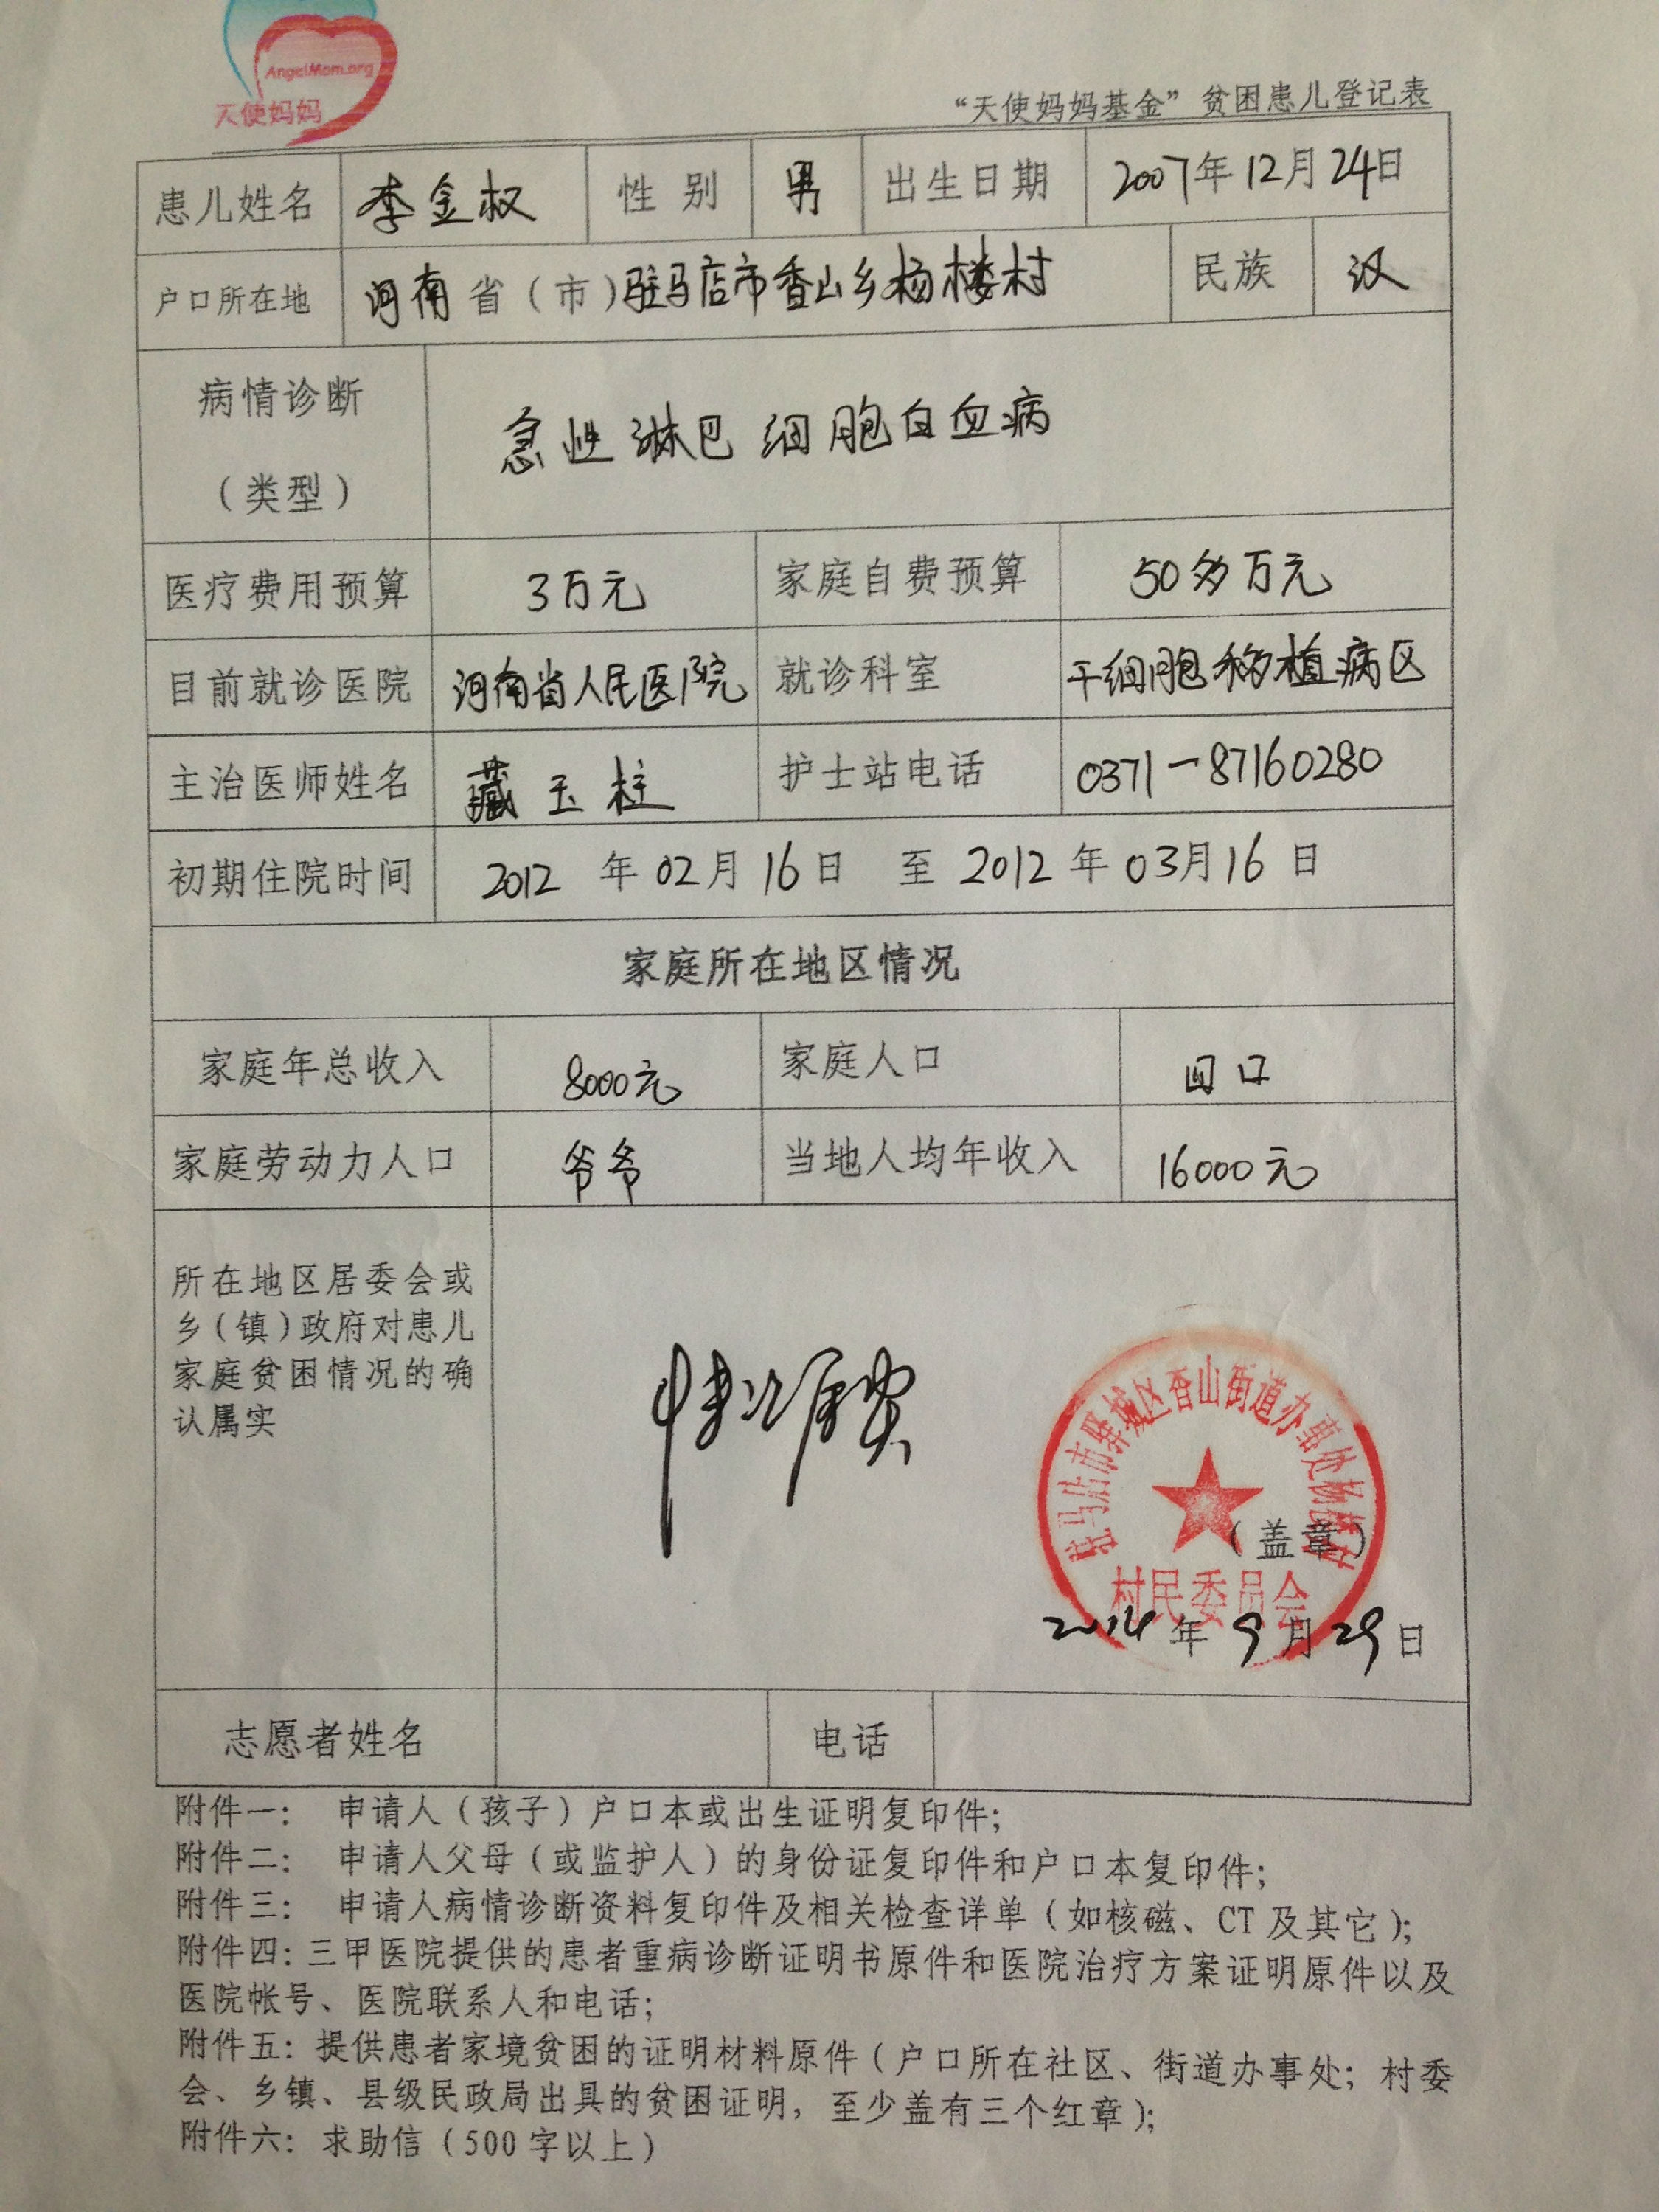 AngelMom.org
天使妈妈
“天使妈妈基金”贫困患儿登记表
患儿姓名 李金权 性别 男 出生日期 2007年12月24日
户口所在地 河南省（市）驻马店市香山乡杨楼村 民族 汉
病情诊断
（类型）
急性淋巴细胞白血病
医疗费用预算 3万元 家庭自费预算 50多万元
目前就诊医院 河南省人民医院 就诊科室 干细胞移植病区
主治医师姓名 藏玉柱 护士站电话 0371-87160280
初期住院时间 2012年02月16日 至 2012年03月16日
家庭所在地区情况
家庭年总收入 8000元 家庭人口 四口
家庭劳动力人口 爷爷 当地人均年收入 16000元
所在地区居委会或
乡（镇）政府对患儿
家庭贫困情况的确
认属实
情况属实
驻马店市驿城区香山街道办事处杨楼村
（盖章）
村民委员会
2014年9月29日
志愿者姓名 电话
附件一： 申请人（孩子）户口本或出生证明复印件；
附件二： 申请人父母（或监护人）的身份证复印件和户口本复印件；
附件三： 申请人病情诊断资料复印件及相关检查详单（如核磁、CT及其它）；
附件四：三甲医院提供的患者重病诊断证明书原件和医院治疗方案证明原件以及
医院帐号、医院联系人和电话；
附件五：提供患者家境贫困的证明材料原件（户口所在社区、街道办事处；村委
会、乡镇、县级民政局出具的贫困证明，至少盖有三个红章）；
附件六：求助信（500字以上）